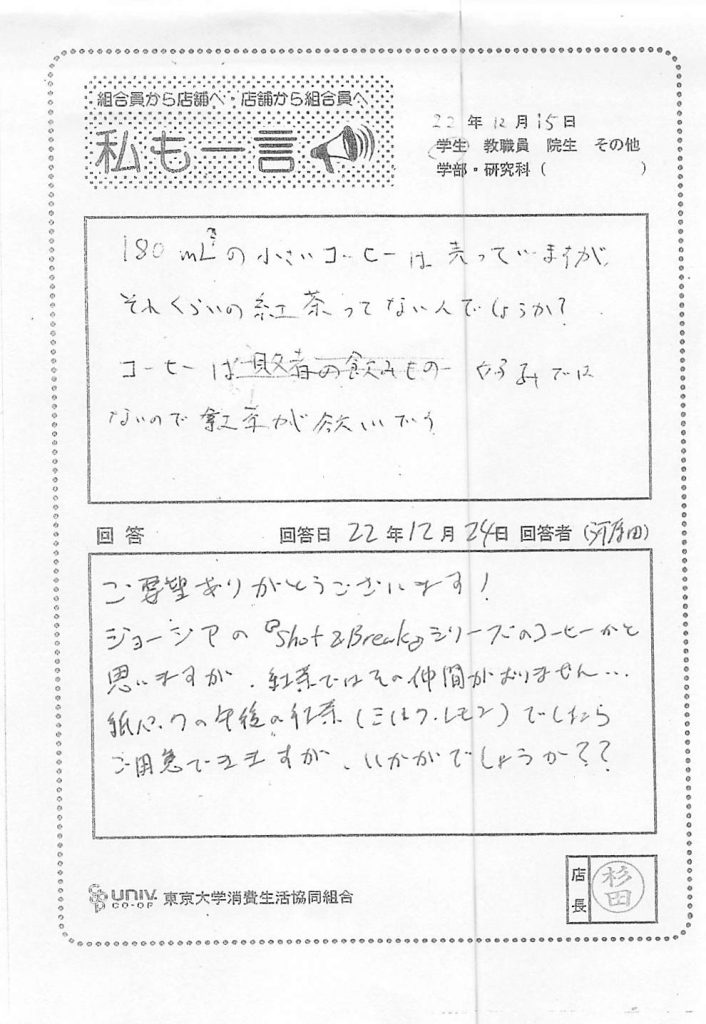 組合員から店舗へ・店舗から組合員へ
私も一言
22年12月15日
学生 教職員 院生 その他
学部・研究科（　　　　　）
180mL?の小さいコーヒーは売っていますが、
それくらいの紅茶ってないんでしょうか?
コーヒーは敗者の飲みもの では
ないので紅茶が飲いです
回答 回答日 22年12月24日 回答者
ご要望ありがとうございます!
ジョージアの『Shot & Break』シリーズのコーヒーかと
思いますが、紅茶ではその仲間がおりません…
紙パックの午後の紅茶(ミルク・レモン)でしたら
ご用意できますが、いかがでしょうか??
UNIV. CO-OP 東京大学消費生活協同組合
店長 杉田